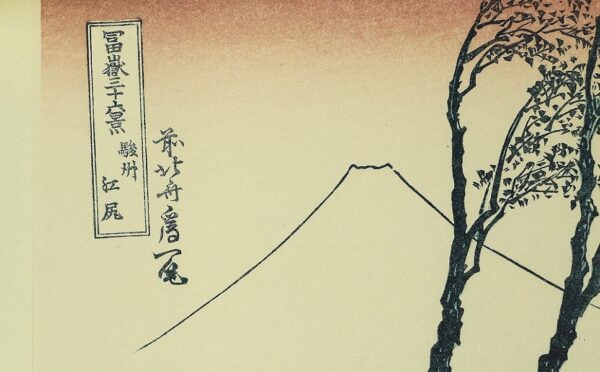 冨嶽三十六景
駿州
江尻
前北斎爲一筆